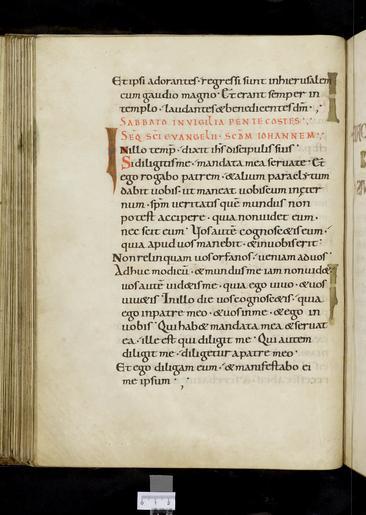 Et ipsi adorantes· regressi sunt in hierusalem
cum gaudio magno· Et erant semper in
templo· laudantes & benedicentes dm̅·
SABBATO IN VIGILIA PENTECOSTES·
SEQ̅ SC̅I EVANGELII· SCD̅M IOHANNEM·
In illo temp̅· dixit ihs̅ discipulis suis·
Si diligitis me· mandata mea servate· Et
ego rogabo patrem· & alium paraclitum
dabit vobis· ut maneat vobiscum in &er
num· sp̅m veritatis que̅ mundus non
potest accipere· quia non vid& eum·
nec scit eum· Vos aute̅ cognosc&is eum·
quia apud vos manebit· & in vobis erit·
Non relinquam vos orfanos· veniam ad vos·
Adhuc modicu̅· & mundus me iam non vid&·
vos aute̅ vid&is me· quia ego vivo· & vos
viv&is· In illo die vos cognosc&is· quia
ego in patre meo· & vos in me· & ego in
vobis· Qui hab& mandata mea & servat
ea· ille est qui diligit me· Qui autem
diligit me· diligetur a patre meo·
Et ego diligam eum· & manifestabo ei
me ipsum·